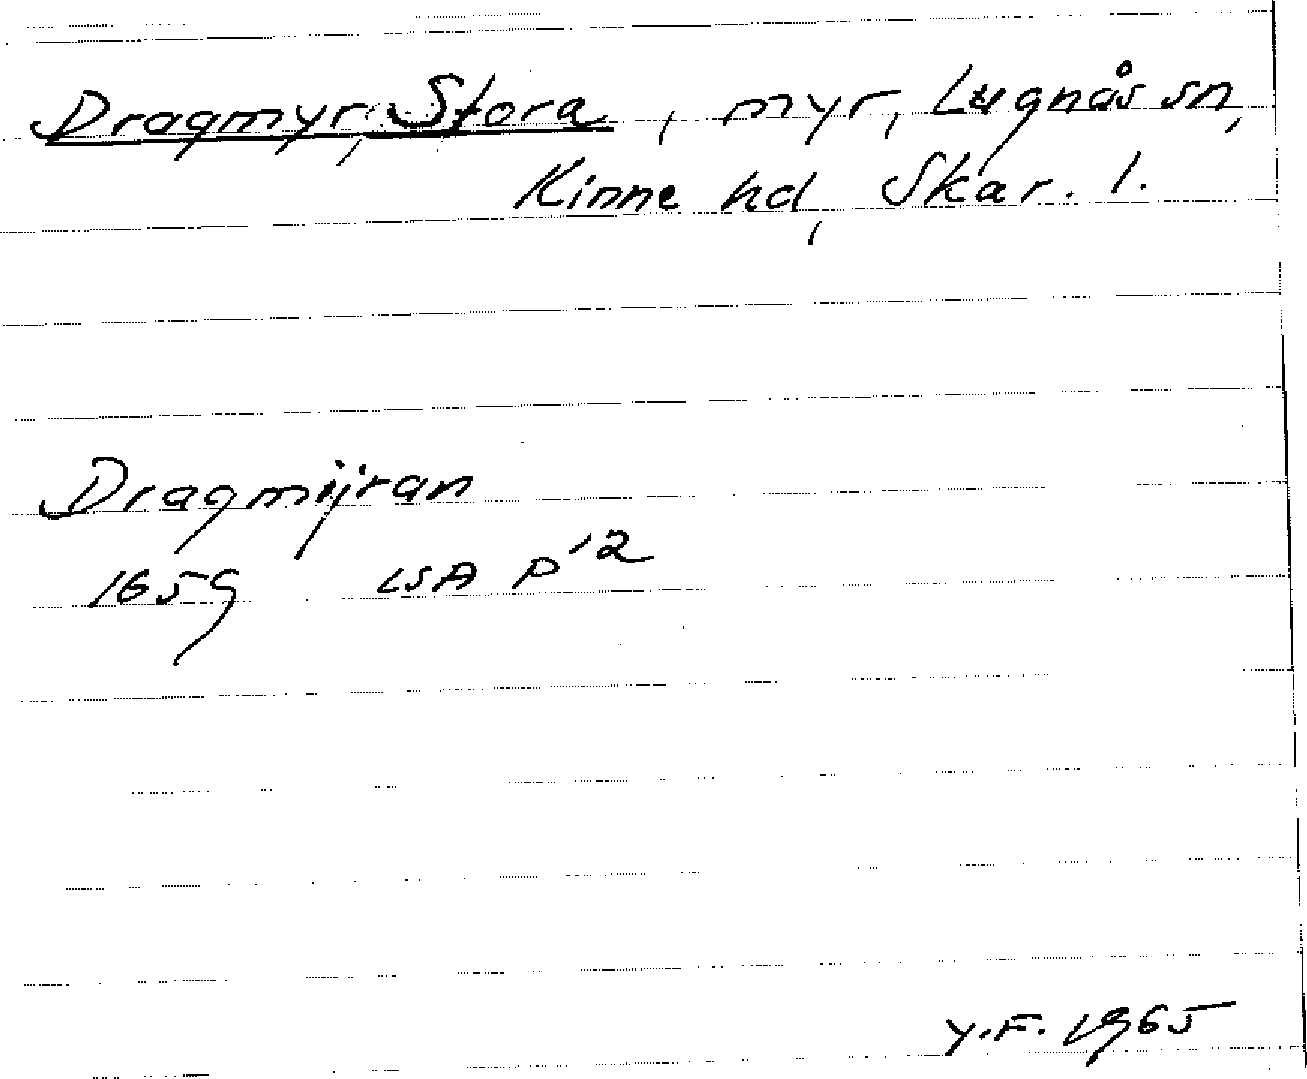 Dragmyr, Stora, myr, Lugnås sn,
Kinne hd, Skar. l.
Dragmijran
1659 LSA P'2
Y.F. 1965